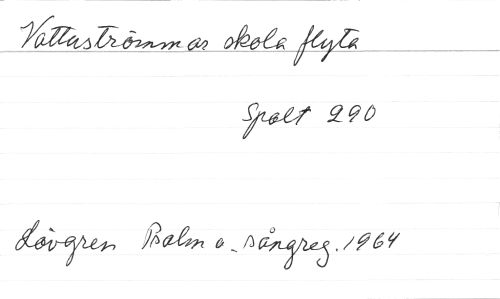 Vattuströmmar skola flyta
Spalt 290
Lövgren Psalm o. sångreg. 1964